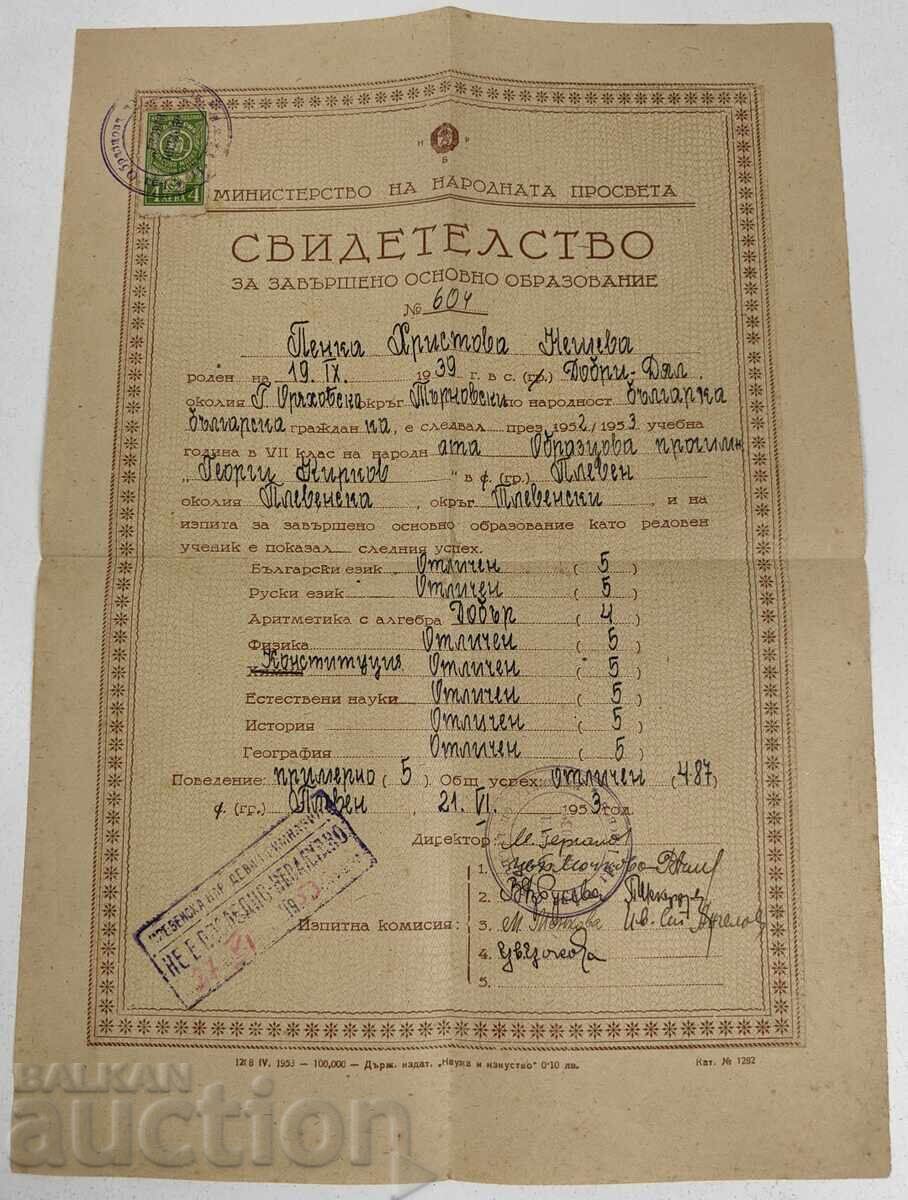 4 ЛЕВА 4
Н Р
Б
МИНИСТЕРСТВО НА НАРОДНАТА ПРОСВЕТА
СВИДЕТЕЛСТВО
ЗА ЗАВЪРШЕНО ОСНОВНО ОБРАЗОВАНИЕ
№ 604
Пенка Христова Нешева
роден на 19. IX. 1939 г. в с. (гр.) Добри-Дял
околия Г. Оряховска окръг Търновски по народност българка
българска граждан ка, е следвал през 1952/1953 учебна
година в VII клас на народн ата Образцова прогимн.
„Георги Кирков“ в ф (гр.) Плевен
околия Плевенска, окръг Плевенски, и на
изпита за завършено основно образование като редовен
ученик е показал следния успех.
Български език Отличен ( 5 )
Руски език Отличен ( 5 )
Аритметика с алгебра Добър ( 4 )
Физика Отличен ( 5 )
Химия Конституция Отличен ( 5 )
Естествени науки Отличен ( 5 )
История Отличен ( 5 )
География Отличен ( 5 )
Поведение: примерно ( 5 ). Общ успех: Отличен ( 4·87 )
ф. (гр.) Плевен, 21. VI. 1953 год.
Директор:
Изпитна комисия:
1.
2.
3.
4.
5.
НЕ Е ОТ
1953
1218 IV. 1953 — 100,000 — Държ. издат. „Наука и изкуство“ 0·10 лв.
Кат. № 1292
BALKAN
auction